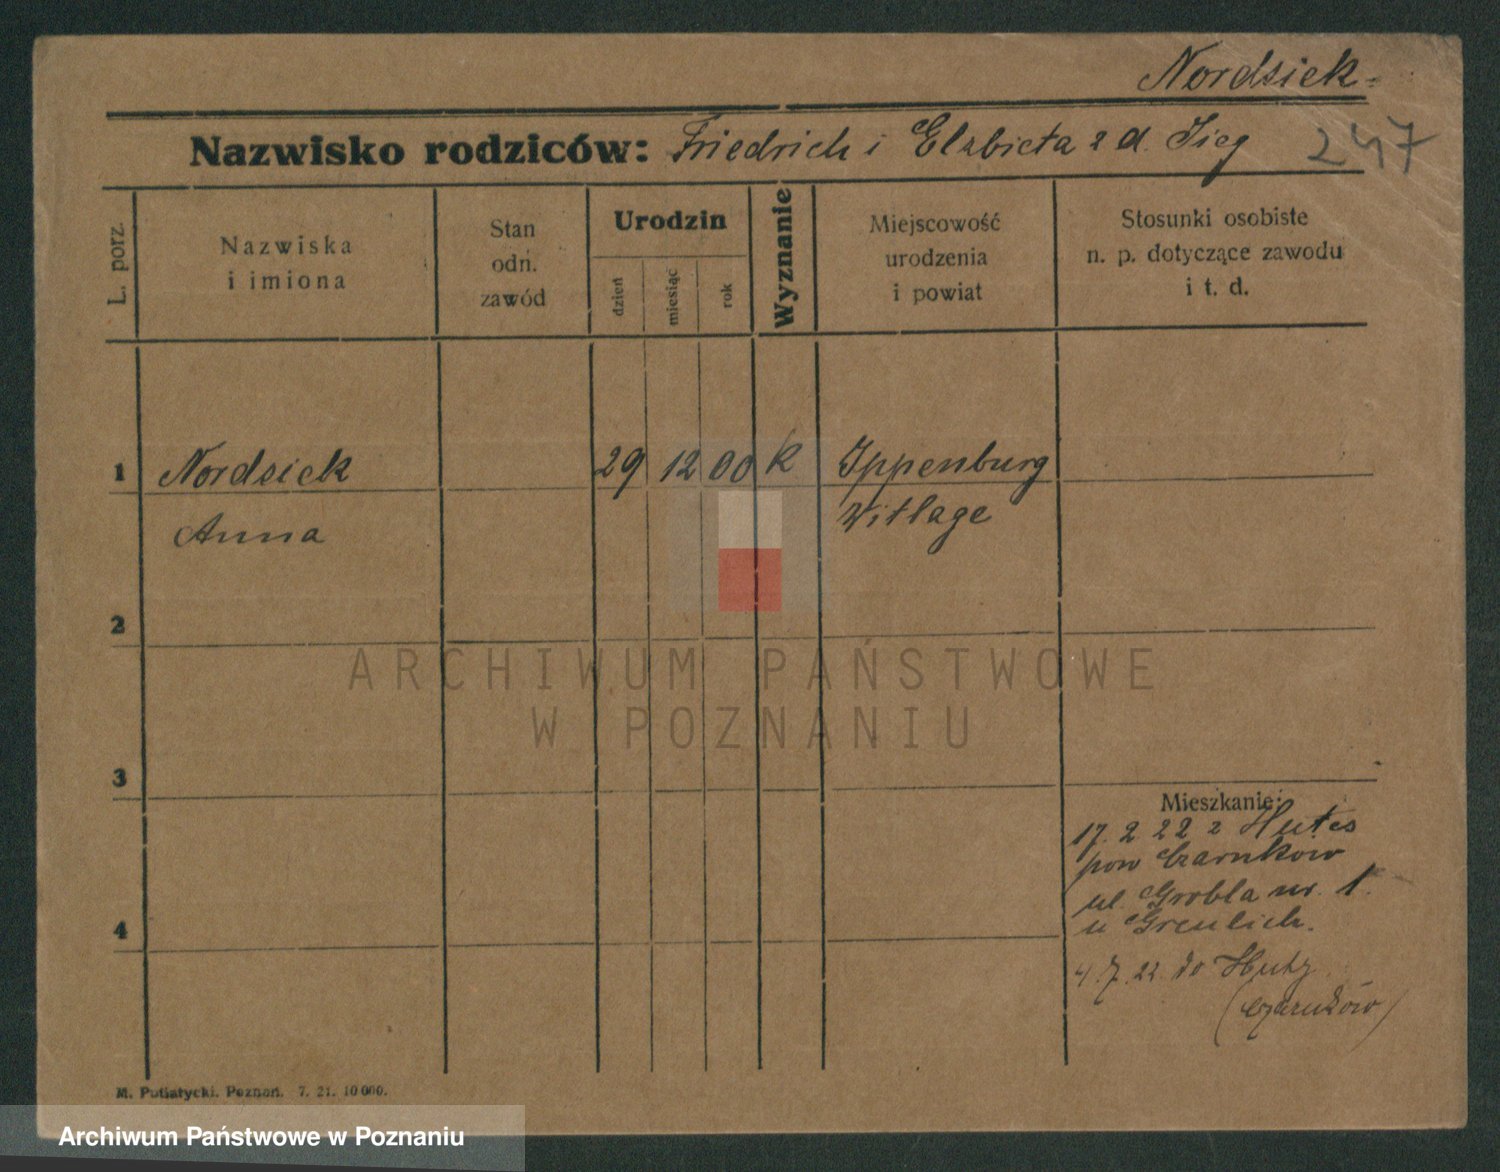 Nordsiek
Nazwisko rodziców: Friedrich i Elzbieta z d. Jieg
247
L. porz.
Nazwiska
i imiona
Stan
odn.
zawód
Urodzin
dzień
miesiąc
rok
Wyznanie
Miejscowość
urodzenia
i powiat
Stosunki osobiste
n. p. dotyczące zawodu
i t. d.
1 Nordsiek 29 12 00 k Ippenburg
Anna Witlage
2
3
4
Mieszkanie:
17. 2 22 z Hutes
pow Czarnkow
ul. Grobla nr. 1.
u Greulich.
4. 7. 22 do Huty
(Czarnków)
M. Putiatycki. Poznań. 7. 21. 10 000.
ARCHIWUM PAŃSTWOWE
W POZNANIU
Archiwum Państwowe w Poznaniu